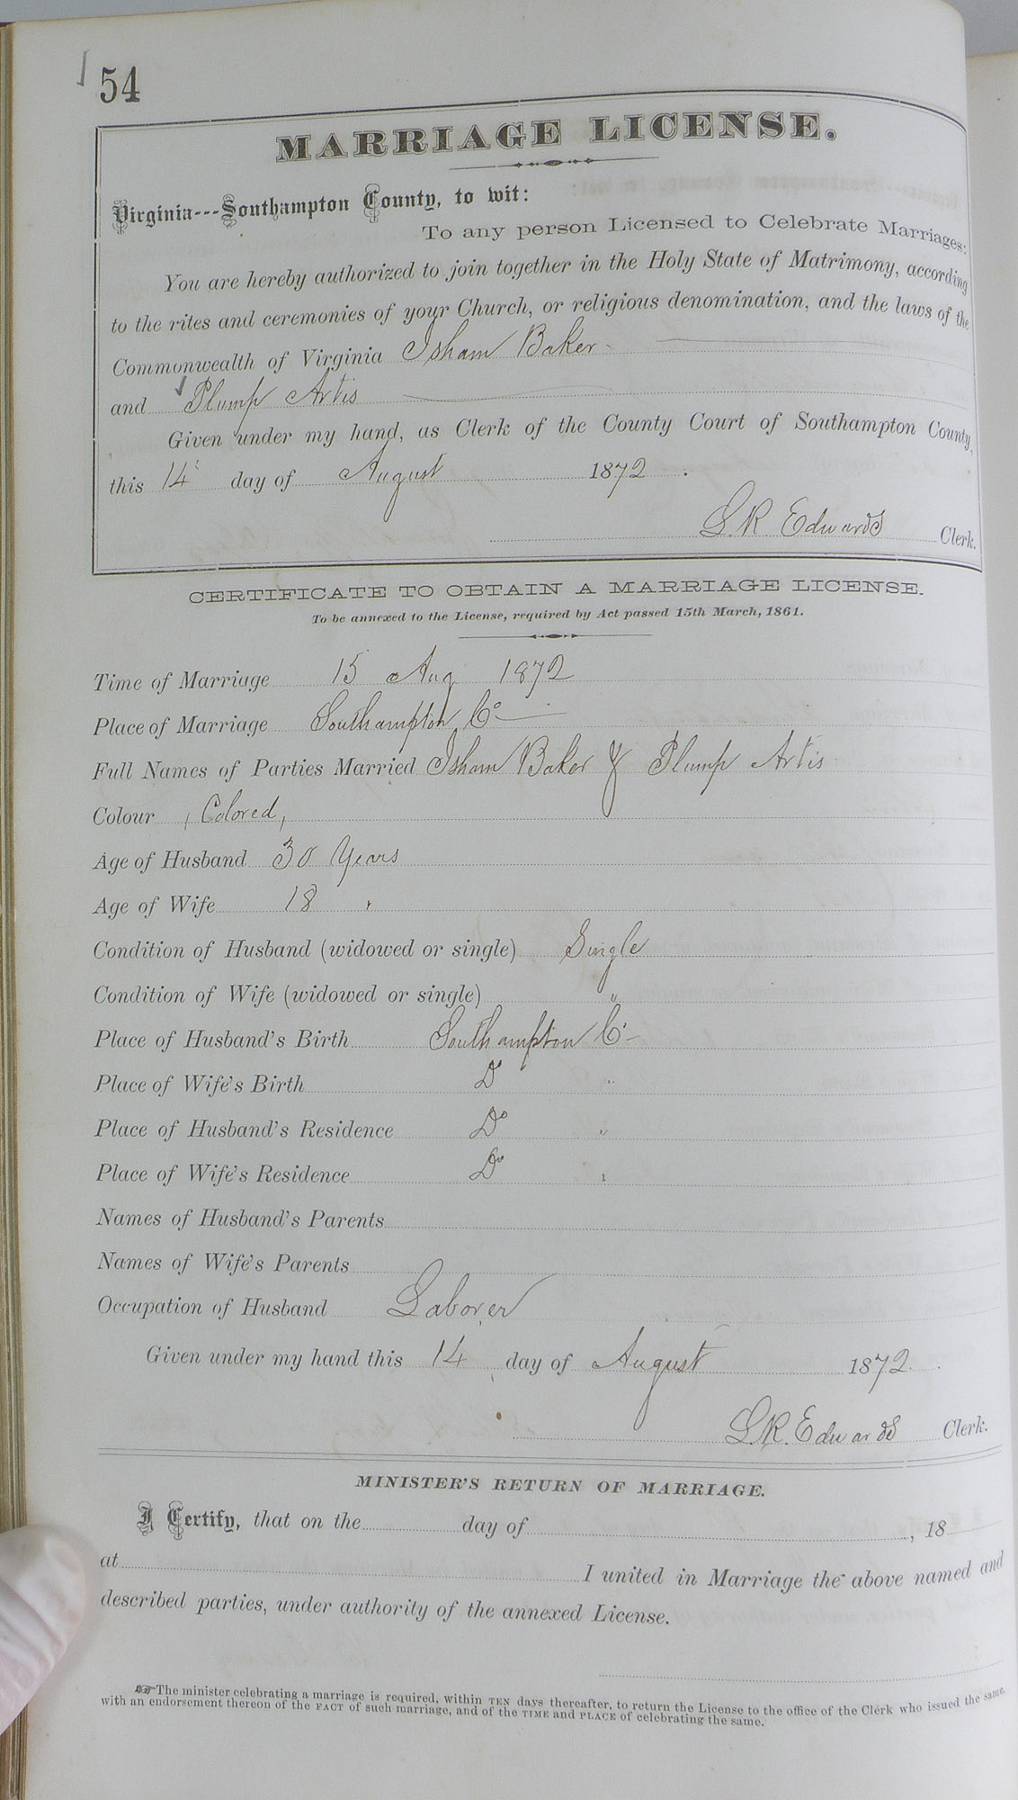 54
MARRIAGE LICENSE.
Virginia---Southampton County, to wit:
To any person Licensed to Celebrate Marriages:
You are hereby authorized to join together in the Holy State of Matrimony, according
to the rites and ceremonies of your Church, or religious denomination, and the laws of the
Commonwealth of Virginia Isham Baker
and Plump Artis
Given under my hand, as Clerk of the County Court of Southampton County,
this 14 day of August 1872.
L. R. Edwards Clerk.
CERTIFICATE TO OBTAIN A MARRIAGE LICENSE.
To be annexed to the License, required by Act passed 15th March, 1861.
Time of Marriage 15 Aug 1872
Place of Marriage Southampton Co
Full Names of Parties Married Isham Baker & Plump Artis
Colour Colored,
Age of Husband 30 Years
Age of Wife 18 "
Condition of Husband (widowed or single) Single
Condition of Wife (widowed or single) "
Place of Husband's Birth Southampton Co
Place of Wife's Birth Do "
Place of Husband's Residence Do "
Place of Wife's Residence Do "
Names of Husband's Parents
Names of Wife's Parents
Occupation of Husband Laborer
Given under my hand this 14 day of August 1872.
L. R. Edwards Clerk.
MINISTER'S RETURN OF MARRIAGE.
I Certify, that on the day of , 18
at I united in Marriage the above named and
described parties, under authority of the annexed License.
☞The minister celebrating a marriage is required, within TEN days thereafter, to return the License to the office of the Clerk who issued the same,
with an endorsement thereon of the FACT of such marriage, and of the TIME and PLACE of celebrating the same.